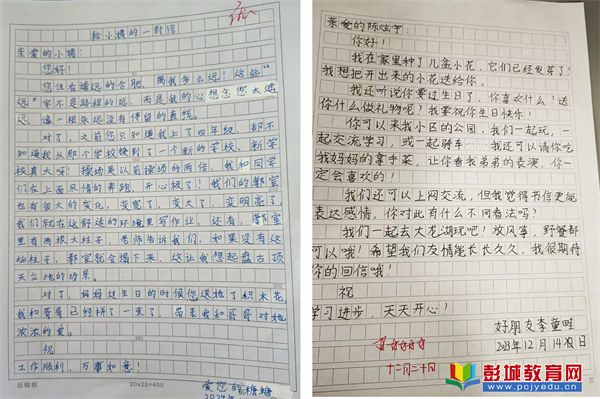 给小姨的一封信
亲爱的小姨:
您好!
您住在遥远的合肥,离我多么远!这些“
远”并不是路程的远,而是我的心想念您太遥
远,像一根永远没有停留的直线。
对了,之前您只知道我上了四年级,却不
知道我从那个学校换到了一个新的学校,新学
校真大呀!操场是以前操场的两倍,我和同学
们在上面尽情的奔跑,开心极了!我们的教室
也有很大的变化,变宽了,变大了,变明亮了,
我们就在这舒适的环境里写作业。还有,教室
里有两根大柱子,老师告诉我们,如果没有这
些柱子,教室就会塌下来,这让我想起盘古顶
天立地的场景。
对了,妈妈过生日的时候您送她了积木花,
我和哥哥已经拼了一束了,带着我和哥哥对她
浓浓的爱。
祝
工作顺利,万事如意!
爱您的糖糖
20×20=400
亲爱的陈炫宇:
你好!
我在家里种了几盆小花,它们已经发芽了!
我想把开出来的小花送给你。
我还听说你要过生日了,你喜欢什么?送
你什么做礼物呢?我要祝你生日快乐!
你可以来我小区的公园,我们一起玩,一
起交流学习,或一起骑车……我还可以请你吃
我妈妈的拿手菜,让你看我弟弟的表演,你一
定会喜欢的!
我们还可以上网交流,但我觉得书信更能
表达感情,你对此有什么不同看法吗?
我们一起去大龙湖玩吧!放风筝,野餐都
可以哦!希望我们友情能长长久久,我很期待
你的回信哦!
祝
学习进步,天天开心!
好朋友李童
2023年12月14日
十二月二十日
彭城教育网
www.pcjyedu.cn